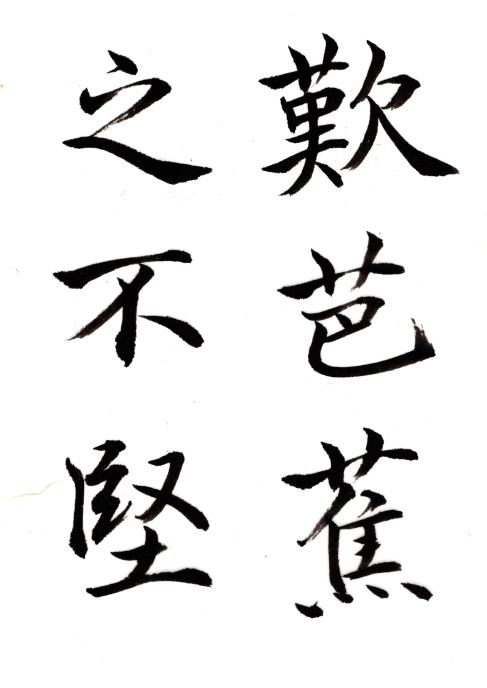 歎芭蕉
之不堅